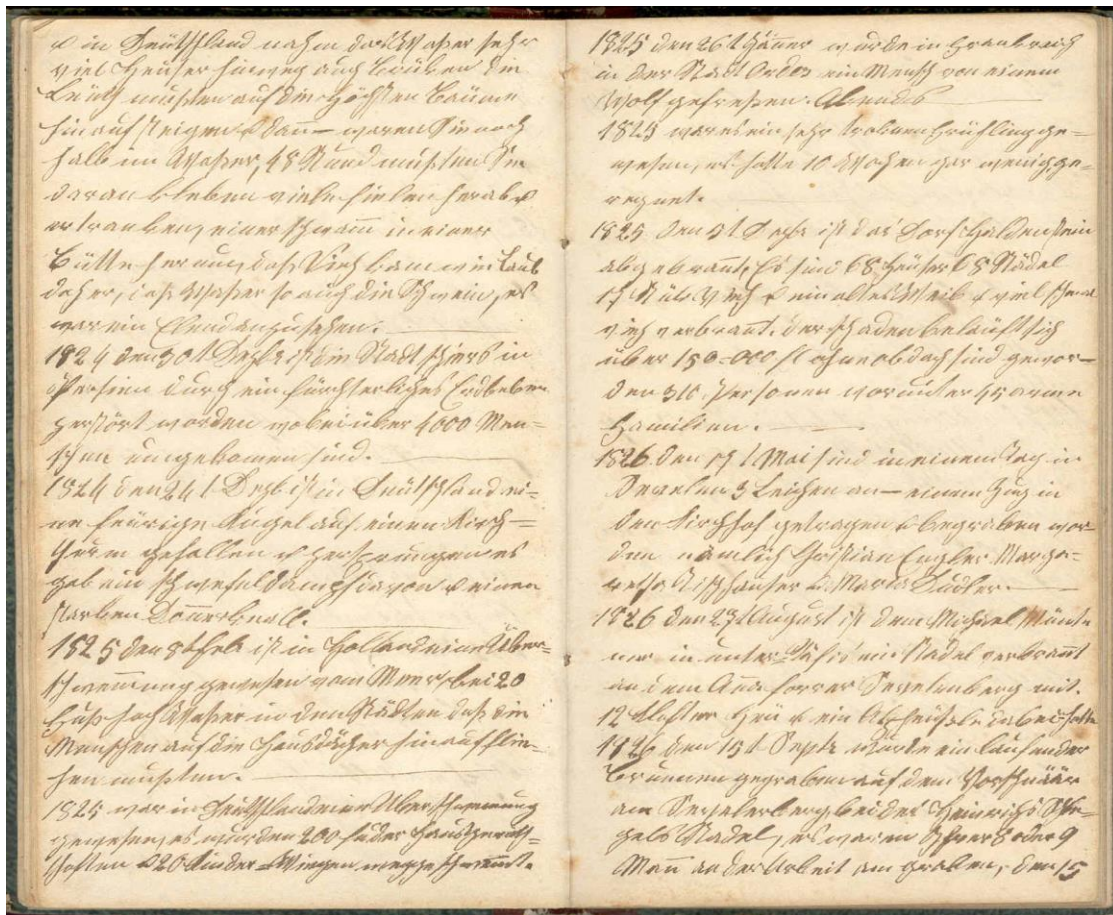 & in Deütschland nahm das Waßer sehr
viel Heüser hinweg auch Brüken die
Leüth mußten auf die Höchsten Bäüme
hinauf steigen & dann waren Sie noch
halb im Waßer, 48 Stund mußten Sie
daran kleben viele fielen herab &
ertranken, einer schwam̄ in einer
Bütte herum, das Vieh kam wie Laub
daher, das Waßer so auch die Schwein, es
war ein Elend anzusehen.
1824 den 30t Dezbr ist die Stadt in
Persien durch ein fürchterliches Erdbeben
zerstört worden wobei über 4000 Men=
schen umgekomen sind.
1824 den 24t Dezb ist in Deütschland ei=
ne feürige Kugel auf einen Kirch=
thurm gefallen & zersprungen es
gab ein schwefeldampf davon & einen
starken Don̄erknall.
1825 den 8t Feb ist in Holland eine Über=
schwem̄ung gewesen vom Meer, bei 20
Fuß hoch Waßer in den Städten daß die
Menschen auf die Hausdächer hinauf flie=
hen mußten.
1825 war in Deütschland eine Überschwem̄ung
gewesen, es wurden 200 Hausgeräth=
schaften & 20 Kinder=Wiegen weggeschwem̄t.
1825 den 26t Jäner wurde in Frankreich
in der Stadt ein Mensch von einem
Wolf gefreßen. Abends
1825 war es ein sehr troken Frühling ge=
wesen, es hatte 10 Wochen gar wenig ge=
regnet.
1825 den 31 ist das Dorf Haldenstein
abgebrant, Es sind 68 Heüser 68 Städel
17 Stük Vieh & ein altes Weib & viel
vieh verbrant. Der schaden beläuft sich
über 150=000 fl ohne obdach sind gewor=
den 316 Personen worunter 45 arme
Familien.
1826 den 17t Mai sind in einem Tag in
Sevelen 3 Leichen an einem Zug in
den Kirchhof getragen & begraben wor=
den nämlich Christian Engler Marga=
retha & Maria
1826 den 27t August ist dem Michael
ner in unter ein Stadel verbrant
an dem Sevelenberg mit.
12 Klafter Heü & ein dabei hatte
1826 den 15t Septr wurde ein laufender
Brunnen gegraben auf dem
am Sevelerberg bei des Heinrichs
Stadel, es waren 8 oder 9
Man̄ an der Arbeit am graben, den 15